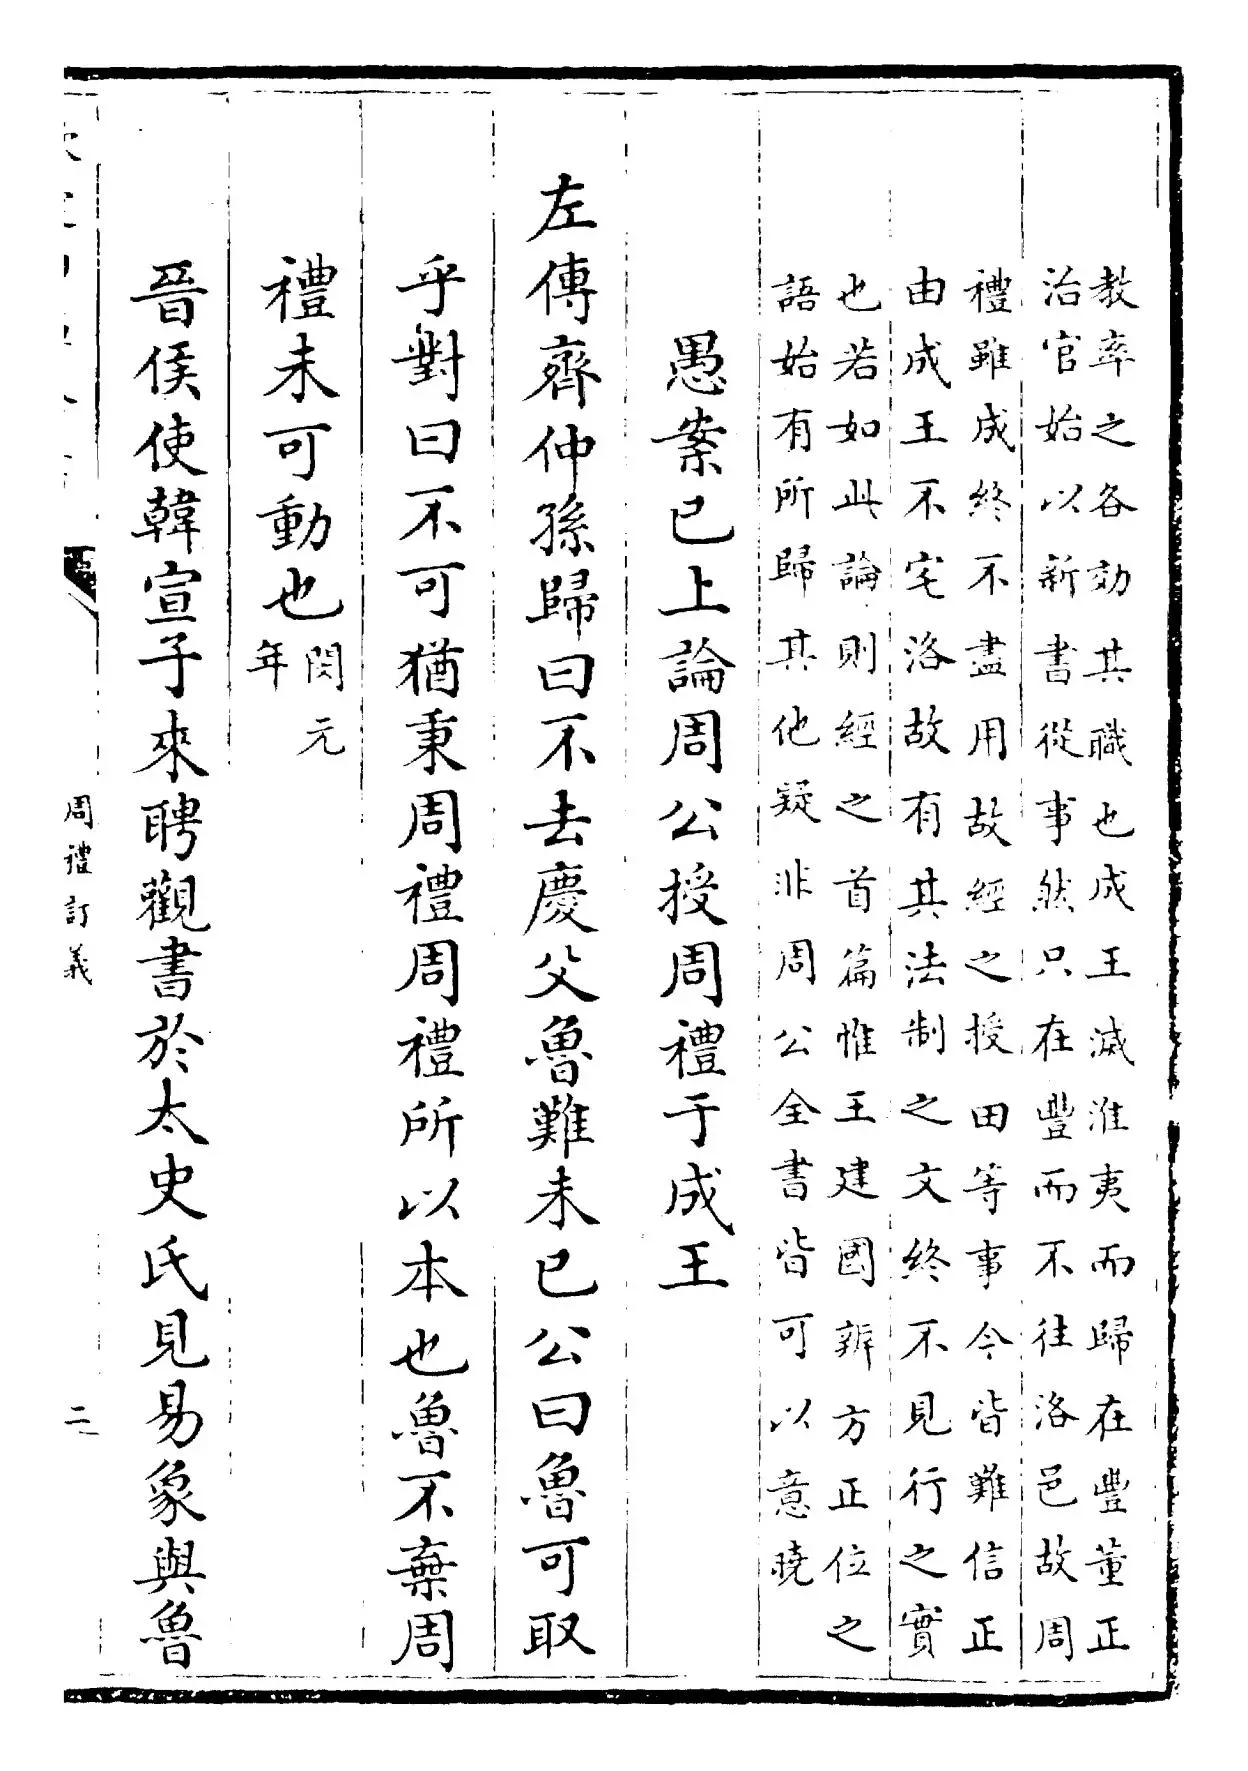 教率之各効其職也成王滅淮夷而歸在豐董正
治官始以新書從事然只在豐而不往洛邑故周
禮雖成終不盡用故經之授田等事今皆難信正
由成王不宅洛故有其法制之文終不見行之實
也若如此論則經之首篇惟王建國辨方正位之
語始有所歸其他疑非周公全書皆可以意曉
愚案已上論周公授周禮于成王
左傳齊仲孫歸曰不去慶父魯難未已公曰魯可取
乎對曰不可猶秉周禮周禮所以本也魯不棄周
禮未可動也閔元
年
晉侯使韓宣子來聘觀書於太史氏見易象與魯
周禮訂義
二